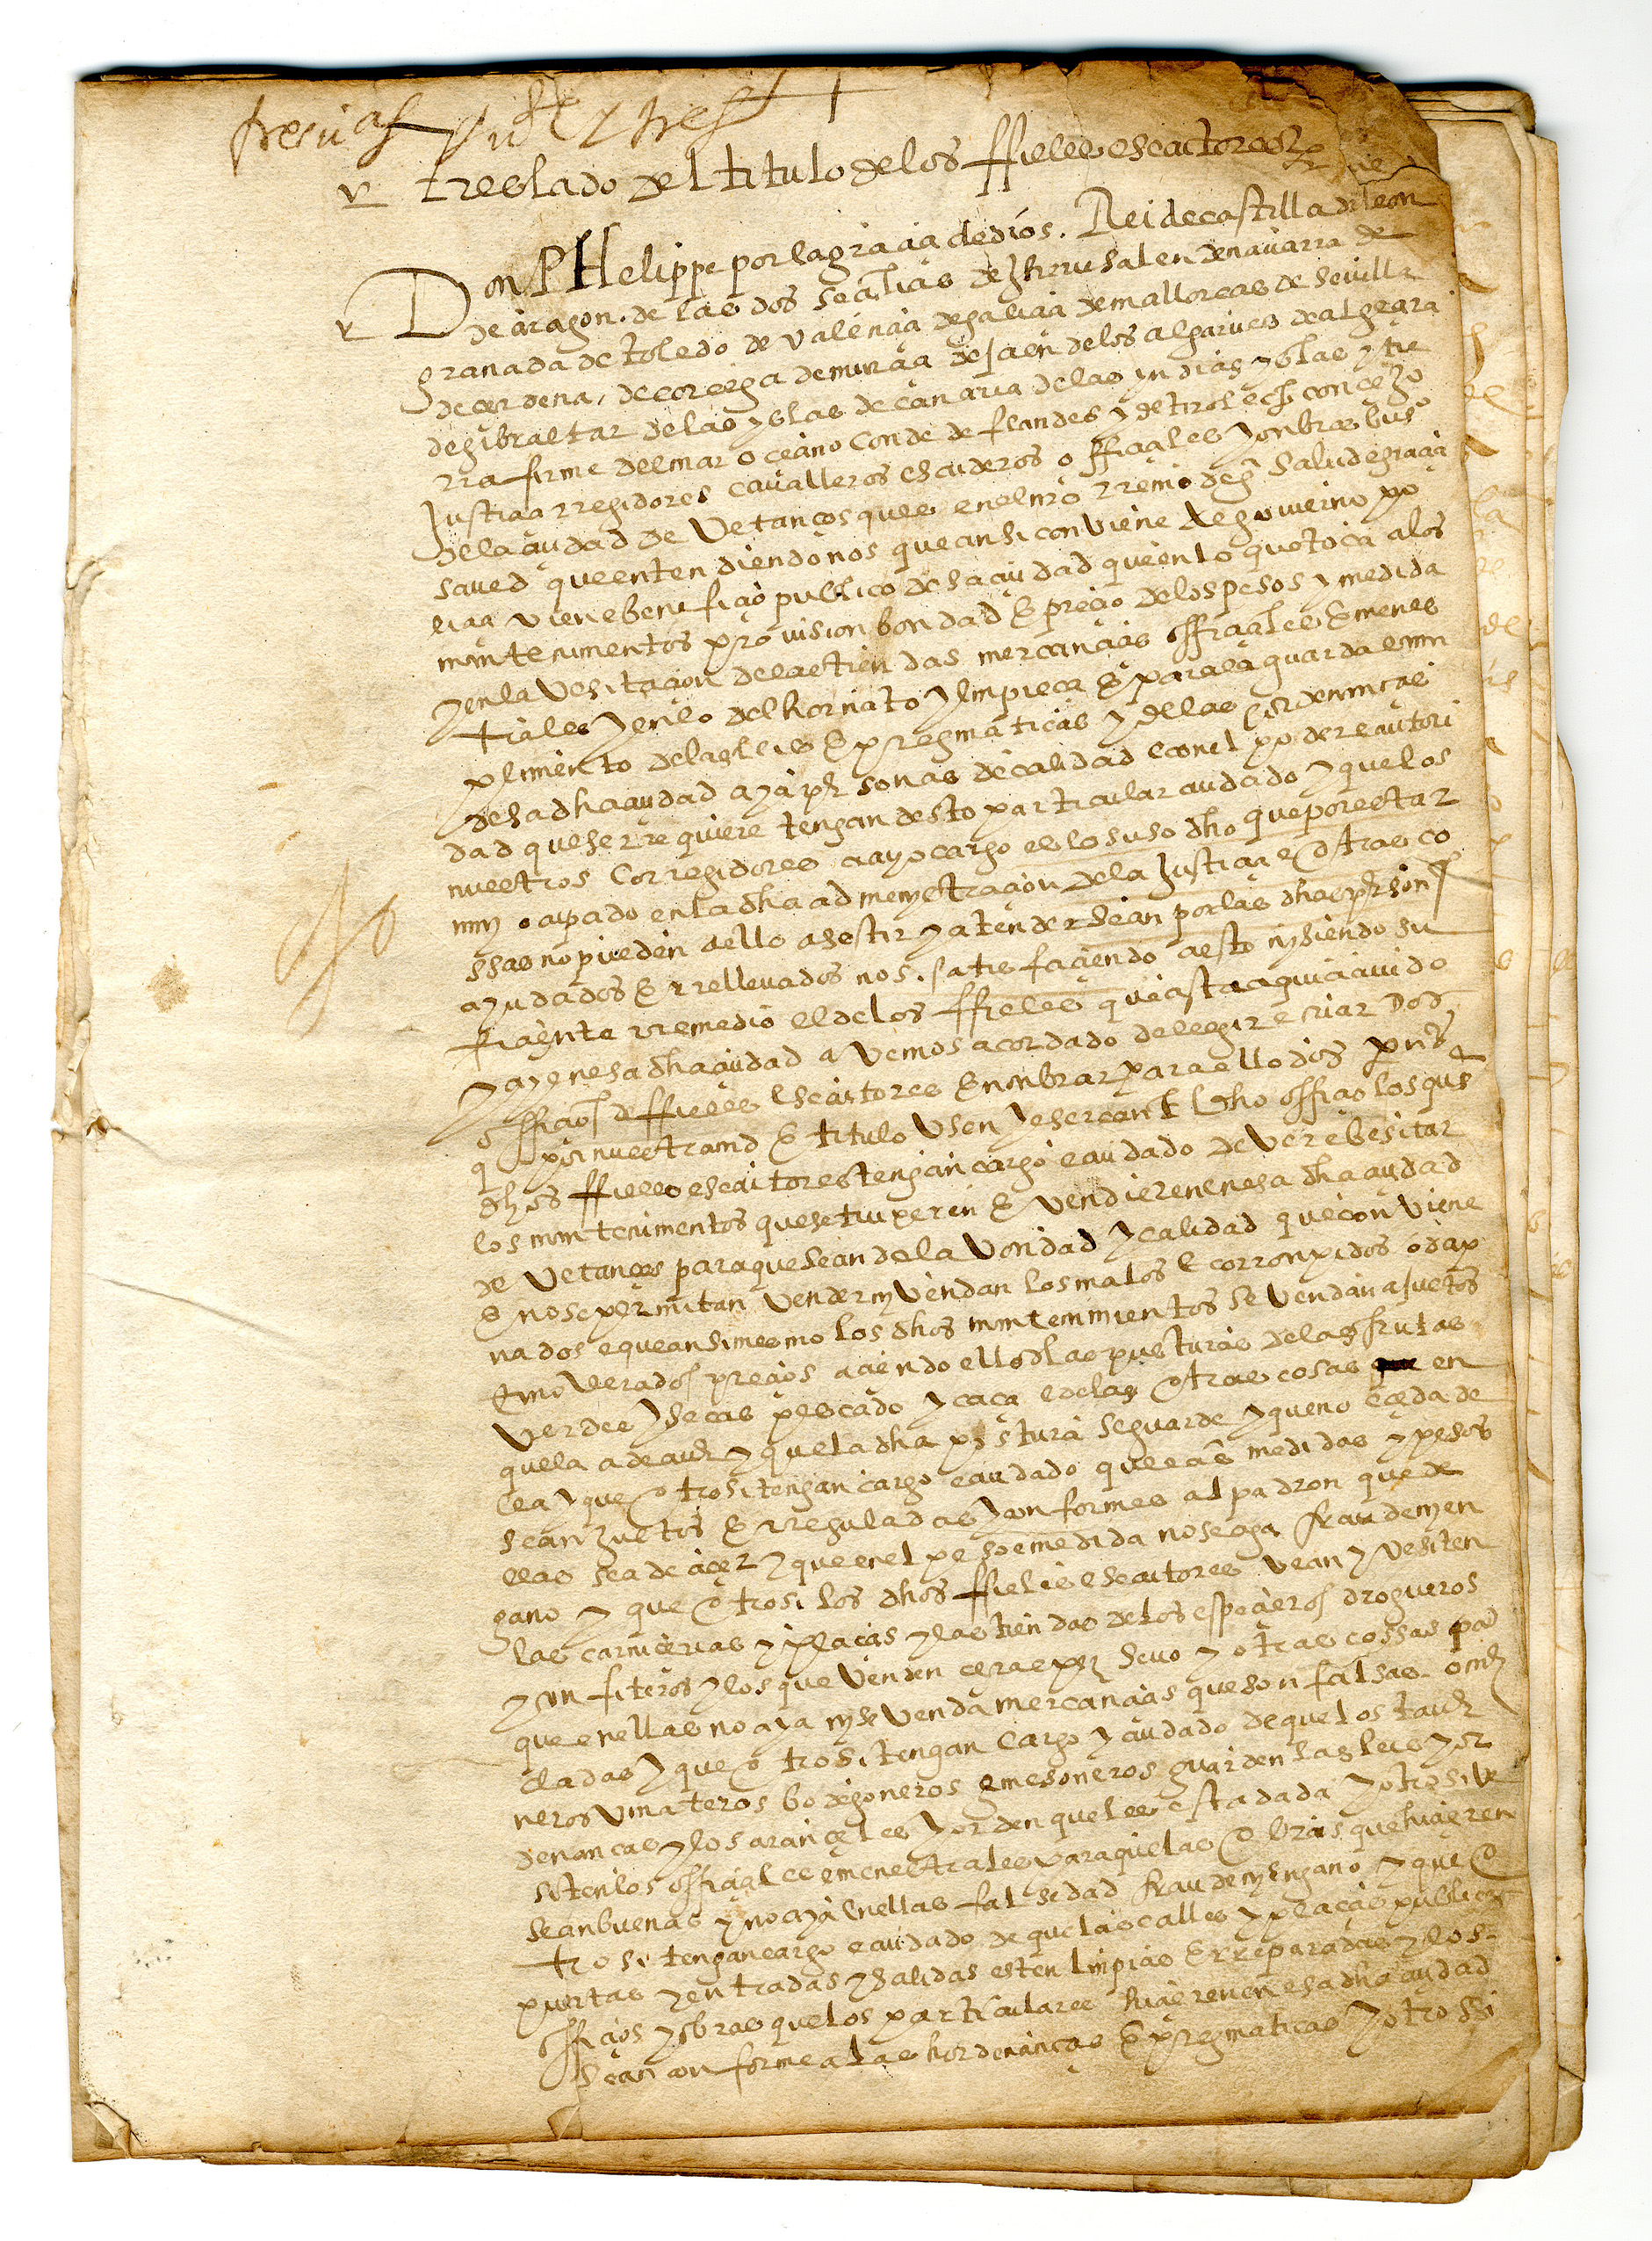 treslado del titulo de los ffieles esecutores
Don PHelippe por la gracia de dios. Rei de castilla de leon
de aragon. de las dos seçilias de Jherusalen de navarra de
granada de toledo de valençia de galiçia de mallorcas de sevilla
de cerdena, de corcega de murçia de jaen de los algarves de algezira
de gibraltar de las yslas de canaria de las yndias yslas y tie
rra firme del mar oceano conde de flandes y de tirol ects concejo
justiçia rregidores cavalleros escuderos offiçiales y onbres bus
de la çiudad de Vetanços que es en el nro rreino de gª salud e graçia
saved que entendiendo nos que ansi conviene al govierno po
liçia y bien e benefiçio publico desa çiudad que en lo que toca a los
mantenimentos provision bondad e preçio de los pesos y medida
y en la vesitaçion de las tiendas mercançias offiçiales e menes
triales y en lo del hornato y limpieça e para la guarda e cun
plimiento de las leis e pregmaticas y de las hordennças
desa dha çiudad aya personas de calidad e con el poder e autori
dad que se rrequiere tengan desto particular cuidado y que los
nuestros Corregidores a cuyo cargo es lo suso dho que por estar
muy ocupado en la dha admenystraçion de la justiçia e otras co
ssas no pueden a ello asestir y atender sean por las dhas personas
ayudados e rrellevados nos. satisfaçiendo a esto ny siendo su
fiçiente rremedio el de los ffieles que asta aqui a avido
y ay en esa dha çiudad avemos acordado de elegir e criar dos
offiçios de ffieles esecutores e nonbrar para ello dos personas
q por nuestra md e titulo usen y eserçan el dho offiçio los qus
dhos ffieles esecutores tengan cargo e cuidado de ver e besitar
los mantenimentos que se truxeren e vendieren en esa dha çiudad
de Vetanços para que sean de la vondad y calidad que conviene
e no se permitan vender ny vendan los malos e corronpidos o dap
nados e que ansimesmo los dhos mantenimientos se vendan a justos
e moderados preçios açiendo ello de las posturas de las frutas
verdes y secas pescado y caça e de las otras cosas en
que la a de aver y que la dha postura se guarde y que no eçeda de
lla y que otrosi tengan cargo e cuidado que las medidas y pesos
sean justos e rreguladas conformes al padron que de
llas sea de açer y que en el peso e medida no se aga fraude ny en
gano y que otrosi los dhos ffieles esecutores vean y vesiten
las carniçerias y plaças y las tiendas de los espeçieros drogueros
y confiteros y los que venden çera e pez sevo y otras cossas pa
que en ellas no aya ny se venda mercançias que son falsas o mez
cladas y que otrosi tengan cargo y cuidado de que los taver
neros vinateros bodegoneros e mesoneros guarden las leis y or
denanças y los arançeles y orden que les esta dada y otrosi ve
siten los offiçiales e menestrales para que las obras que hiçieren
sean buenas y no aya en ellas falsedad fraude ny engano y que o
trosi tengan cargo e cuidado de que las calles y plaças publicas
puertas y entradas y salidas esten limpias e rreparadas y los
offiçios y obras que los particulares hiçieren en esa dha çiudad
sean conforme a las hordenanças e pregmaticas y otrossi